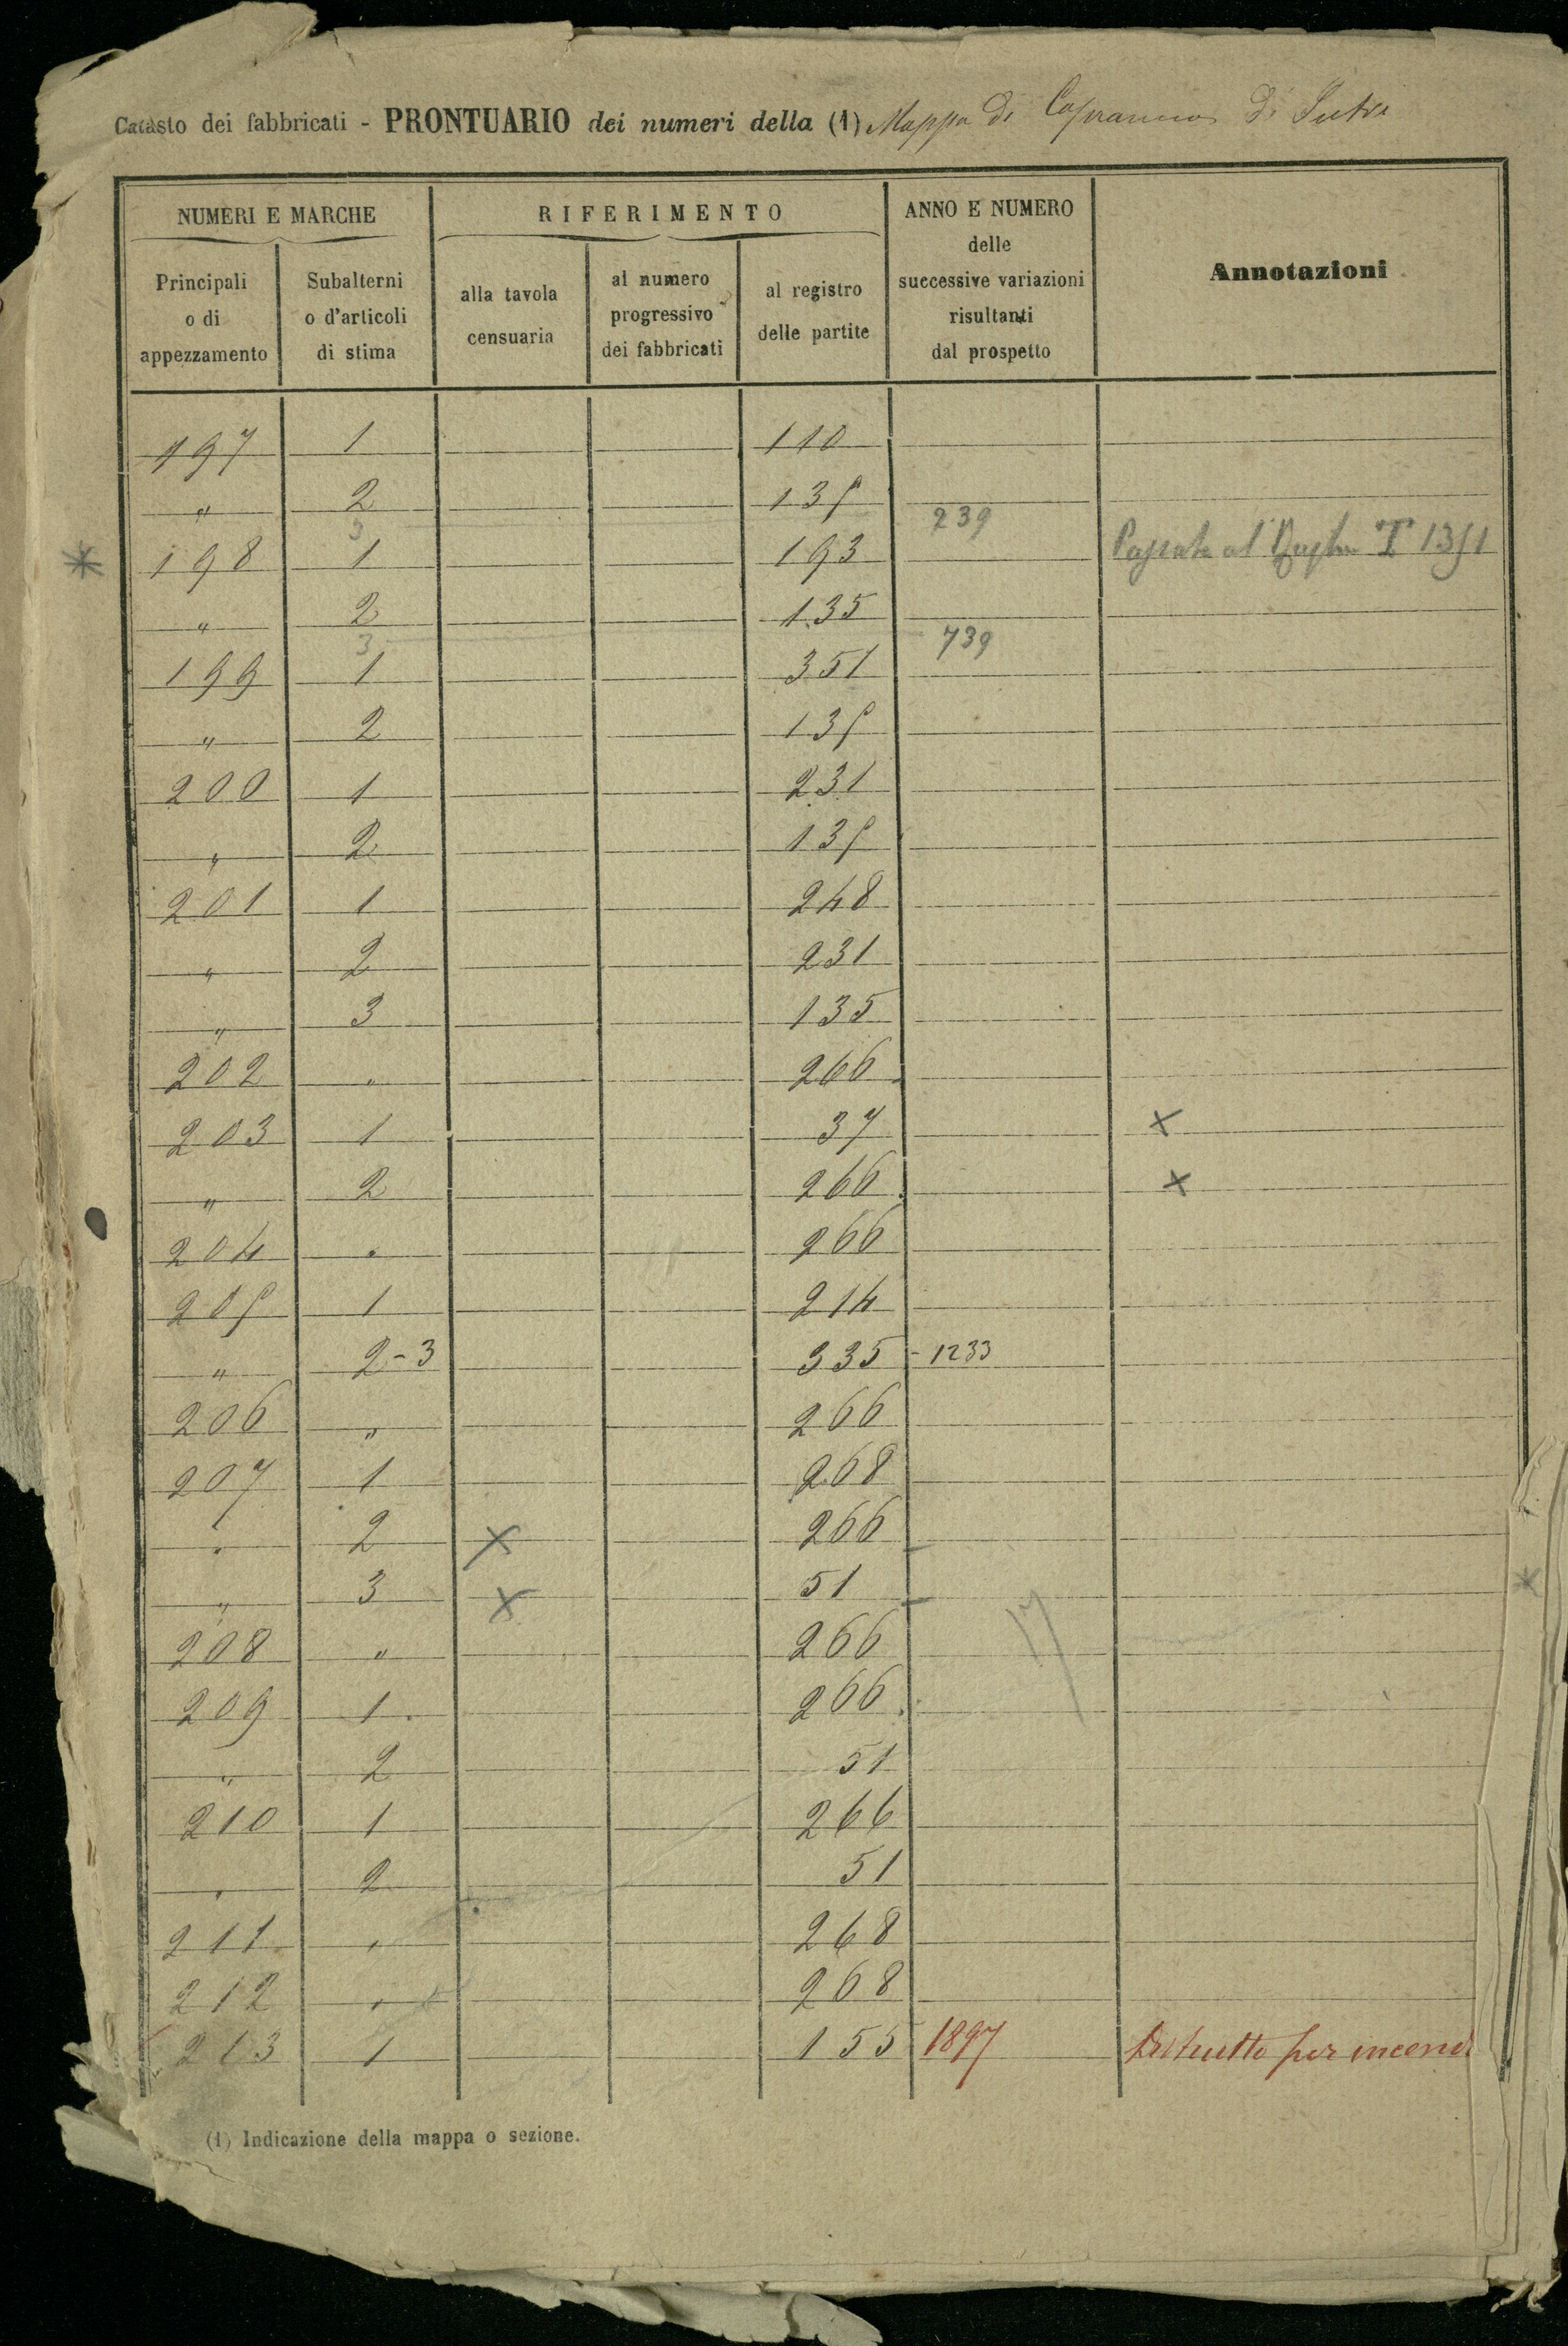 Catasto dei fabbricati - PRONTUARIO dei numeri della (1) Mappa di Capranica di Sutri
NUMERI E MARCHE
RIFERIMENTO
ANNO E NUMERO
delle
successive variazioni
risultanti
dal prospetto
Annotazioni
Principali
o di
appezzamento
Subalterni
o d'articoli
di stima
alla tavola
censuaria
al numero
progressivo
dei fabbricati
al registro
delle partite
197 1 110
" 2 135
3 239
* 198 1 193 al T 1351
" 2 135
3 739
199 1 351
" 2 135
200 1 231
" 2 135
201 1 248
" 2 231
" 3 135
202 " 266
203 1 37 x
" 2 266 x
204 " 266
205 1 214
" 2-3 335 - 1233
206 " 266
207 1 268
" 2 x 266
" 3 x 51
17
208 " 266
209 1 266
" 2 51
210 1 266
" 2 51
211 " 268
212 " 268
213 1 155 1897 Distrutto per incend
(1) Indicazione della mappa o sezione.